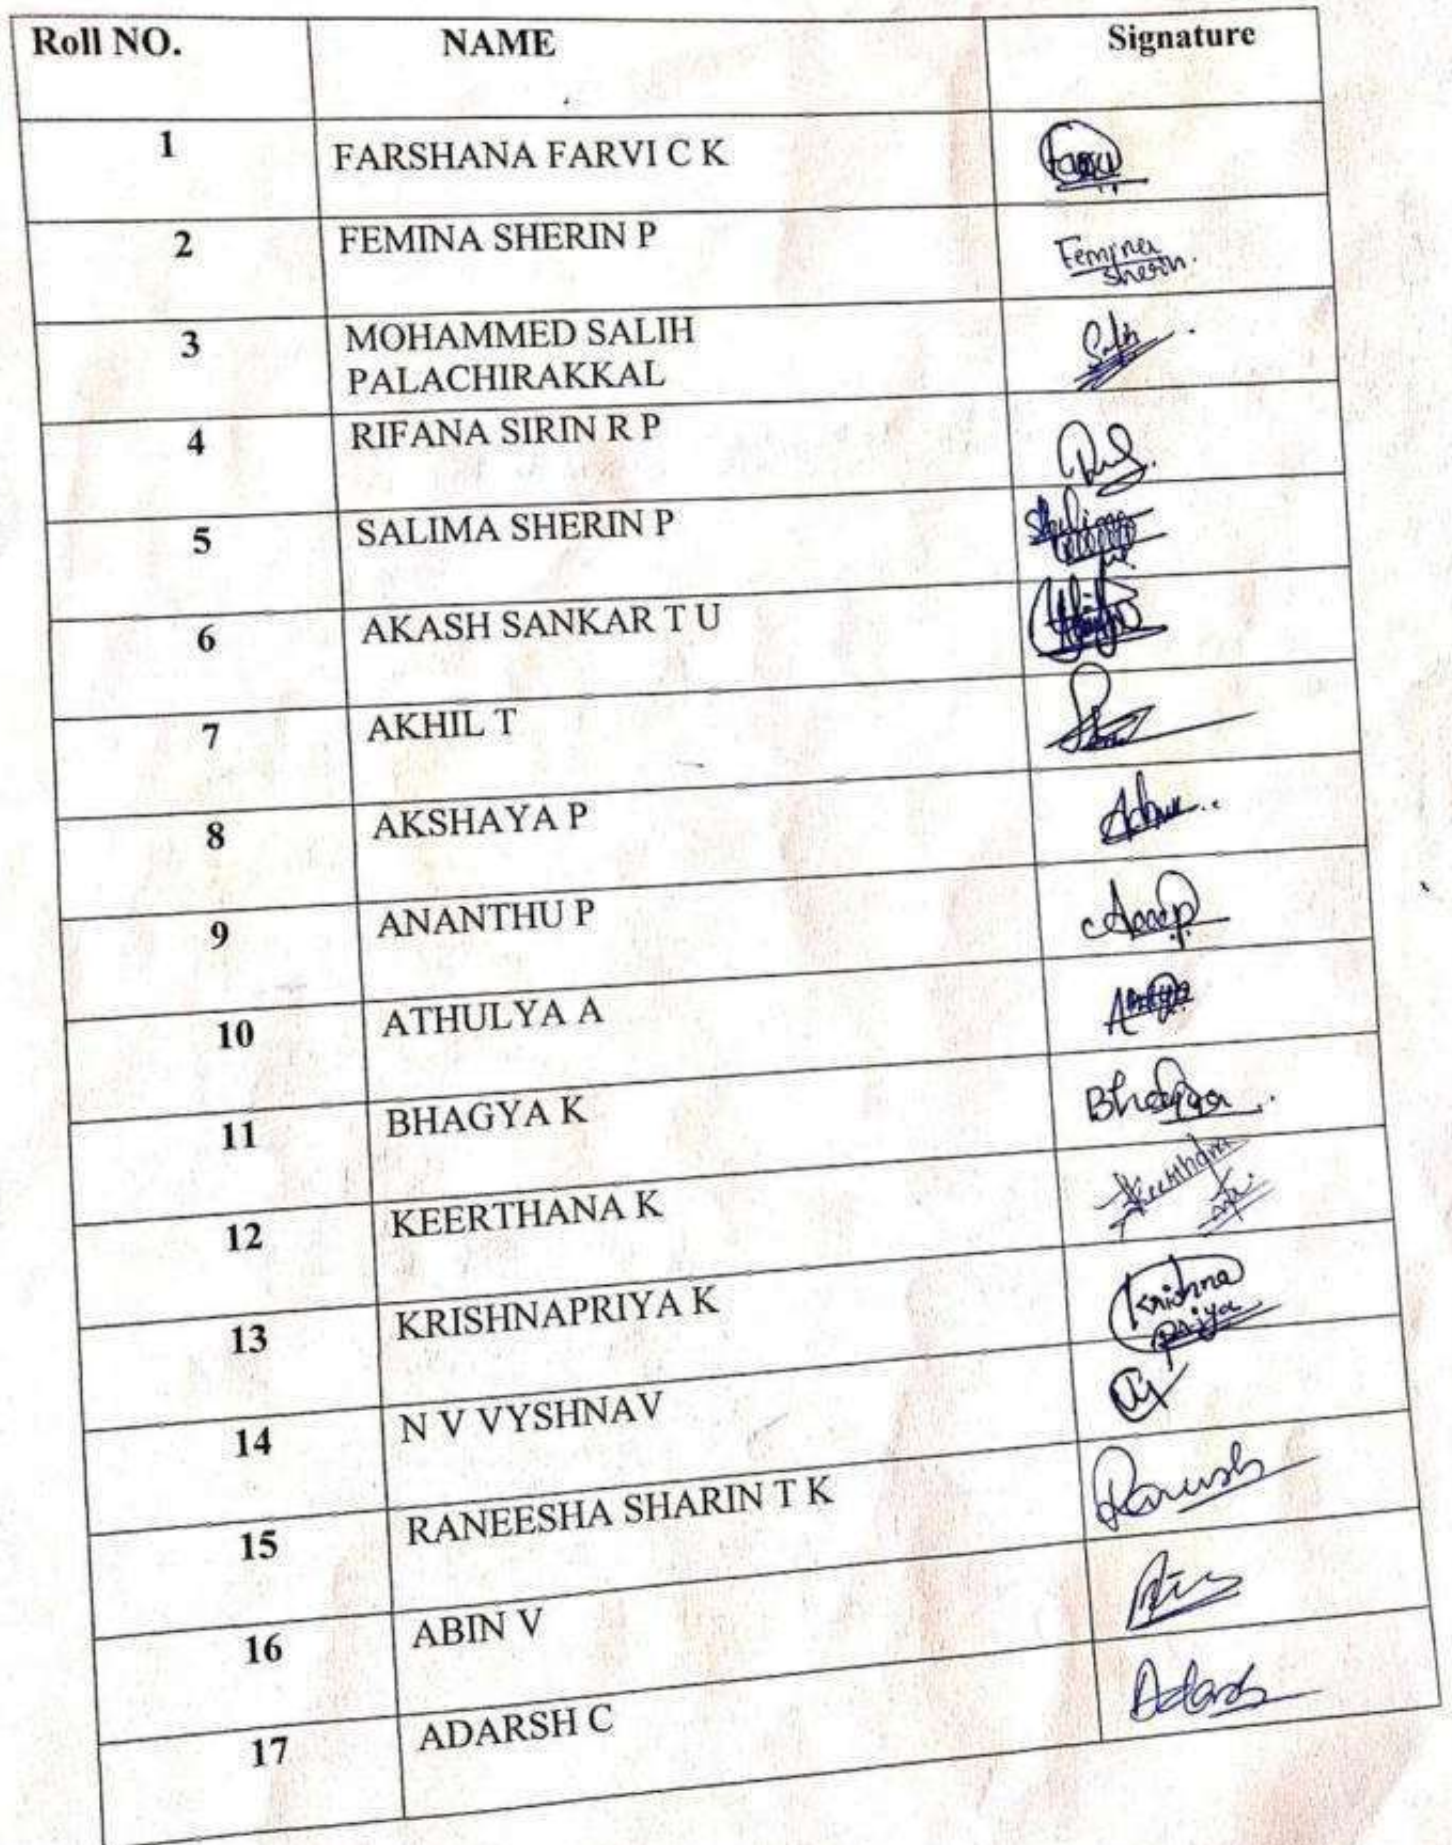 Roll NO. NAME Signature
1 FARSHANA FARVI C K
2 FEMINA SHERIN P Femina
Sherin.
3 MOHAMMED SALIH
PALACHIRAKKAL Salih
4 RIFANA SIRIN R P
5 SALIMA SHERIN P
6 AKASH SANKAR T U
7 AKHIL T
8 AKSHAYA P
9 ANANTHU P
10 ATHULYA A
11 BHAGYA K Bhagya
12 KEERTHANA K Keerthana
13 KRISHNAPRIYA K Krishna
priya
14 N V VYSHNAV
15 RANEESHA SHARIN T K
16 ABIN V
17 ADARSH C Adarsh